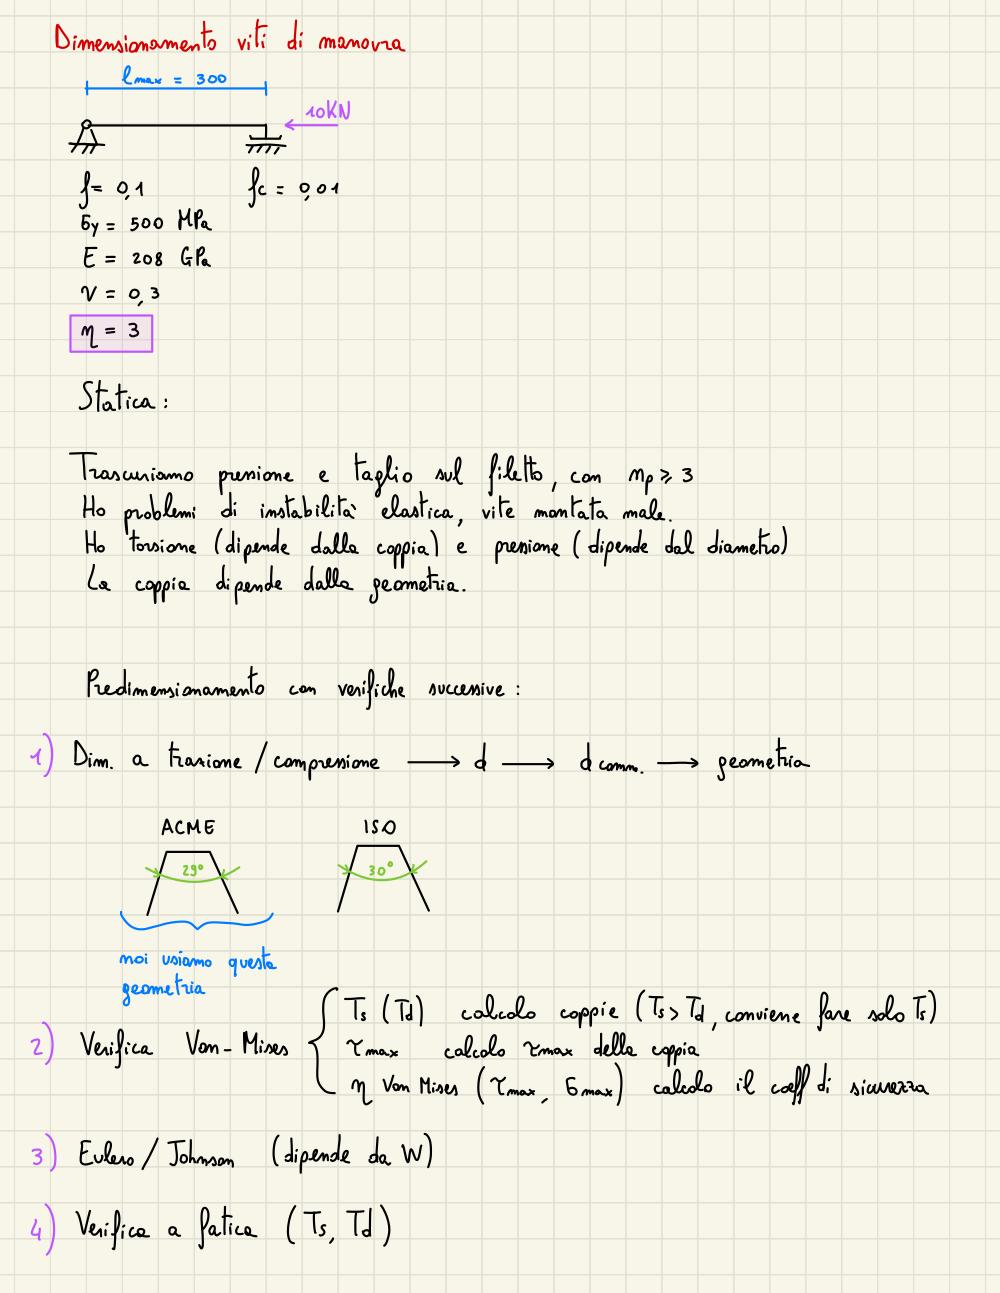 Dimensionamento viti di manovra
lmax = 300
10KN
f = 0,1 fc = 0,01
σy = 500 MPa
E = 208 GPa
ν = 0,3
η = 3
Statica:
Trascuriamo pressione e taglio sul filetto, con np ≥ 3
Ho problemi di instabilità elastica, vite montata male.
Ho torsione (dipende dalla coppia) e pressione (dipende dal diametro)
La coppia dipende dalla geometria.
Predimensionamento con verifiche successive:
1) Dim. a trazione / compressione → d → d comm. → geometria
ACME ISO
29° 30°
noi usiamo questa
geometria
Ts (Td) calcolo coppie (Ts > Td, conviene fare solo Ts)
2) Verifica Von-Mises { τmax calcolo τmax della coppia
η Von Mises (τmax, σmax) calcolo il coeff di sicurezza
3) Eulero / Johnson (dipende da W)
4) Verifica a fatica (Ts, Td)